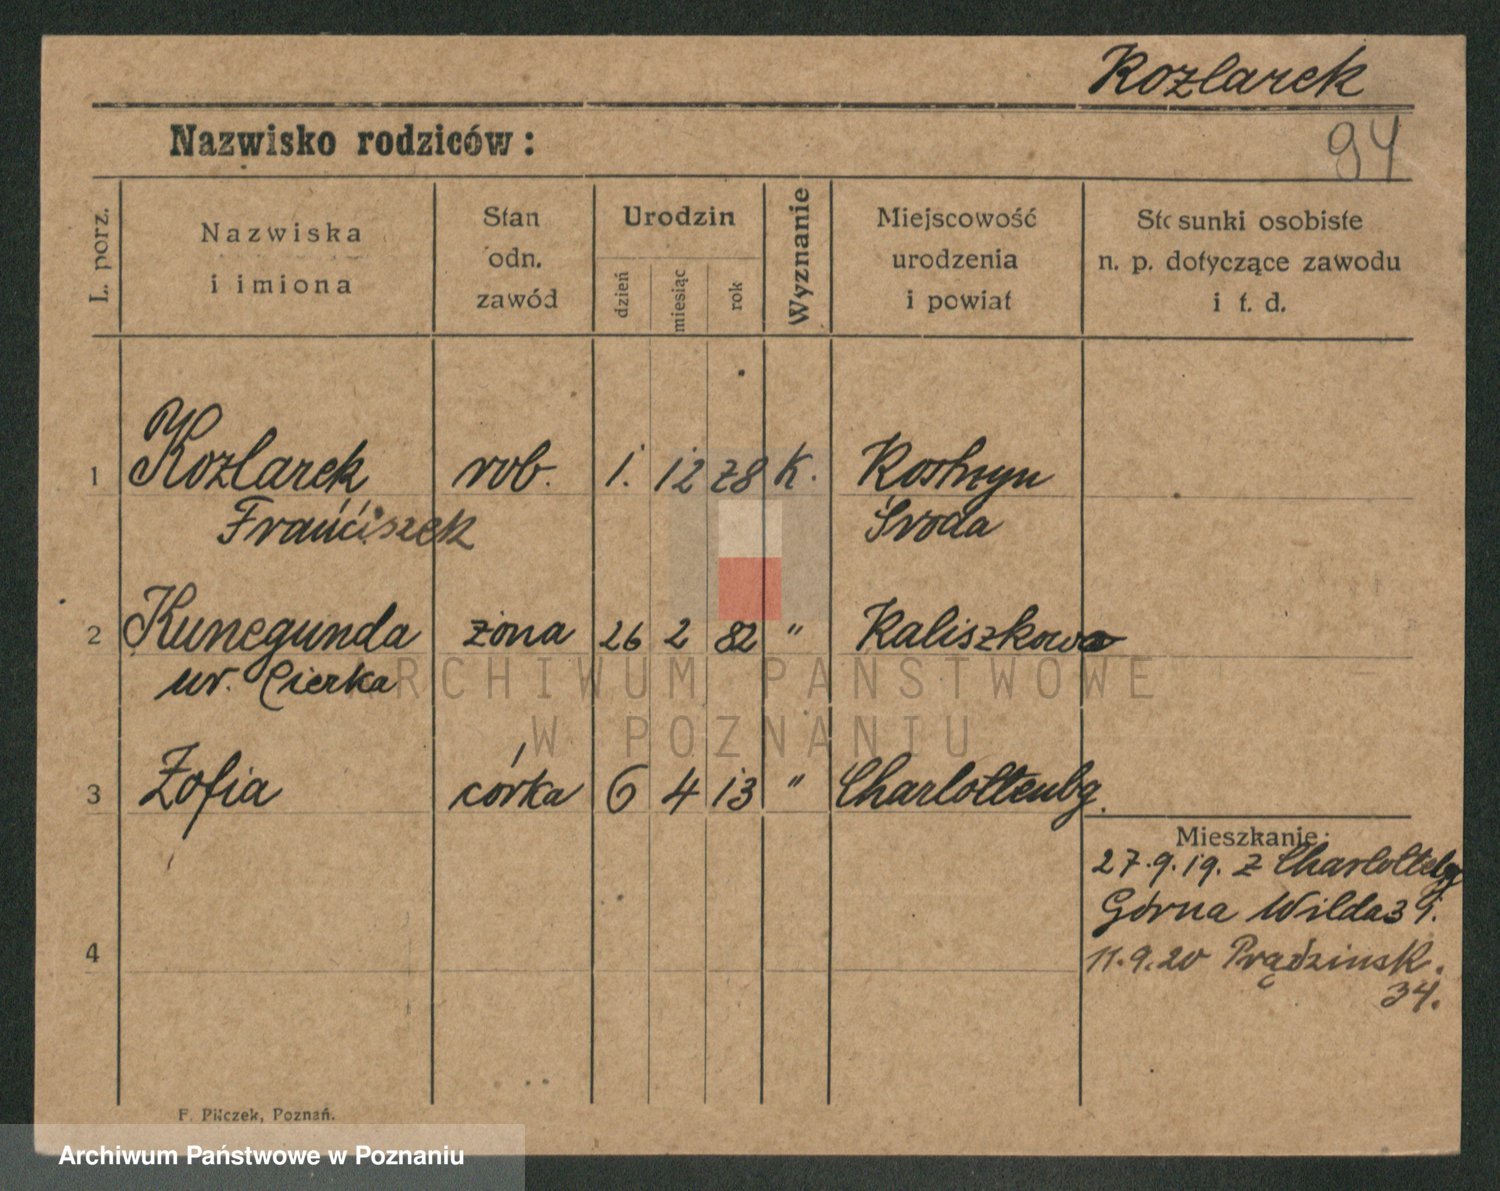 Kozlarek
Nazwisko rodziców:
94
L. porz.
Nazwiska
i imiona
Stan
odn.
zawód
Urodzin
dzień
miesiąc
rok
Wyznanie
Miejscowość
urodzenia
i powiat
Stosunki osobiste
n. p. dotyczące zawodu
i t. d.
1 Kozlarek rob. 1. 12 78 K. Kostrzyn
Franciszek Środa
2 Kunegunda żona 26 2 82 " Kaliszkowo
ur. Cierka
ARCHIWUM PAŃSTWOWE
W POZNANIU
3 Zofia córka 6 4 13 " Charlottenbg.
Mieszkanie:
27.9.19. z Charlottebg
Górna Wilda 39.
4
11.9.20 Prądzinsk.
34.
F. Pilczek, Poznań.
Archiwum Państwowe w Poznaniu